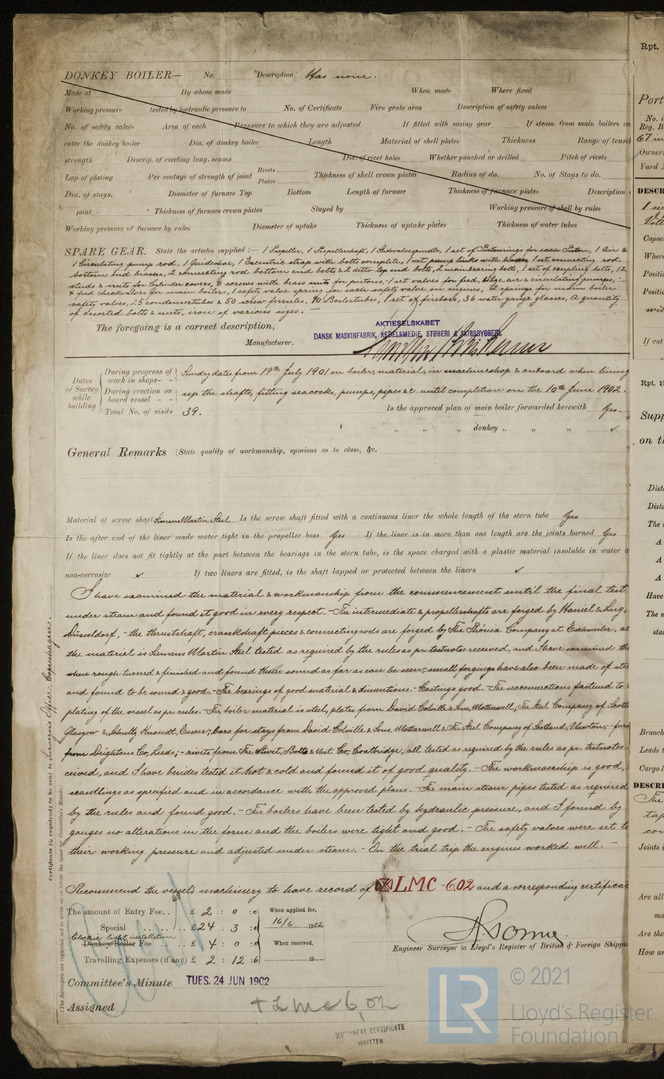 DONKEY BOILER— No. Description Has none.
Made at By whom made When made Where fixed
Working pressure tested by hydraulic pressure to No. of Certificate Fire grate area Description of safety valves
No. of safety valves Area of each Pressure to which they are adjusted If fitted with easing gear If steam from main boilers ca
enter the donkey boiler Dia. of donkey boiler Length Material of shell plates Thickness Range of tensil
strength Descrip. of riveting long. seams Dia. of rivet holes Whether punched or drilled Pitch of rivets
Lap of plating Per centage of strength of joint Rivets Plates Thickness of shell crown plates Radius of do. No. of Stays to do.
Dia. of stays. Diameter of furnace Top Bottom Length of furnace Thickness of furnace plates Description
joint Thickness of furnace crown plates Stayed by Working pressure of shell by rules
Working pressure of furnace by rules Diameter of uptake Thickness of uptake plates Thickness of water tubes
SPARE GEAR. State the articles supplied:— 1 Propeller, 1 Propellershaft, 1 set of for each 1 Air &
1 Circulating pump rod, 1 Guideshoe, 1 Excentric strap with bolts complete, 1 set pump links with 1 set connecting rod
bottom end brasses, 2 connecting rod bottom end bolts & 2 ditto top end bolts, 2 mainbearing bolts, 1 set of coupling bolts, 12
studs & nuts for cylinder covers, 6 screws with brass nuts for pistons, 1 set valves for feed, bilge, air & circulating pumps,
2 feed checkvalves for main boiler, 1 safety valve spring for each safety valve on engines, 2 springs for main boiler
safety valves, 25 condensertubes & 50 screw ferrules. 10 Boilertubes, 1 set of firebars, 36 water gauge glasses, A quantity
of assorted bolts & nuts, iron of various sizes.
The foregoing is a correct description,
AKTIESELSKABET
DANSK MASKINFABRIK, KEDELSMEDIE, STØBERI & SKIBSBYGGERI
Manufacturer.
Dates of Survey while building
During progress of work in shops - -
Sundry dates from 19th July 1901 on boiler, material, in machineshop & onboard when lining
During erection on board vessel - -
up the shafts, fitting seacocks, pumps, pipes &c. until completion on the 10th June 1902.
Total No. of visits 39. Is the approved plan of main boiler forwarded herewith Yes.
" " donkey " " "
General Remarks (State quality of workmanship, opinions as to class, &c.
Material of screw shaft Siemens Martin Steel Is the screw shaft fitted with a continuous liner the whole length of the stern tube Yes
Is the after end of the liner made water tight in the propeller boss Yes If the liner is in more than one length are the joints burned Yes
If the liner does not fit tightly at the part between the bearings in the stern tube, is the space charged with a plastic material insoluble in water a
non-corrosive If two liners are fitted, is the shaft lapped or protected between the liners
I have examined the material & workmanship from the commencement until the final test
under steam and found it good in every respect. - The intermediate & propellershafts are forged by Haniel & Lueg,
Düsseldorf, - the thrustshaft, crankshaft pieces & connectingrods are forged by The Phönix Company at Eschweiler, all
the material is Siemens Martin Steel tested as required by the rules as pr. testnotes received, and I have examined th
when rough turned & finished and found them sound as far as can be seen; small forgings have also been made of ste
and found to be sound & good. - The bearings of good material & dimentions. - Castings good. - The seaconnections fastened to
plating of the vessel as pr. rules. - The boiler material is steel, plates from David Colville & Sons, Motherwell, The Steel Company of Scotl
Glasgow & Schultz, Knaudt, Essen; bars for stays from David Colville & Sons, Motherwell & The Steel Company of Scotland, Newton; - furn
from Deightons Co, Leeds; - rivets from The Rivet, Bolt & Nut Co, Coatbridge, all tested as required by the rules as pr. testnotes
ceived, and I have besides tested it hot & cold and found it of good quality. - The workmanship is good,
scandlings as specified and in accordance with the approved plans. - The main steam pipes tested as required
by the rules and found good. - The boilers have been tested by hydraulic pressure, and I found by
gauges no alterations in the form and the boilers were tight and good. - The safety valves were set to
their working pressure and adjusted under steam. - On the trial trip the engines worked well. -
Recommend the vessel's machinery to have record of LMC - 6.02 and a corresponding certificat
The amount of Entry Fee.. £ 2 : 0 : 0 When applied for,
Special £24 : 3 : 0 16/6 1902
Electric light installation
Donkey Boiler Fee £ 4 : 0 : 0 When received,
Travelling Expenses (if any) £ 2 : 12 : 6 19
Engineer Surveyor to Lloyd's Register of British & Foreign Shippin
Committee's Minute TUES. 24 JUN 1902
Assigned + LMC 6,02
MACHINERY CERTIFICATE
WRITTEN.
Certificate (if required) to be sent to Surveyors Office, Copenhagen.
(The Surveyors are requested not to write on or below the space for Committee's Minute.)
Rpt.
Port
No. i
Reg. B
67 in
Owner
Yard
DESCR
Capac
Where
Positi
Positi
If cut
Rpt. 1
Supp
on th
Dista
Dista
The
A
A
A
Have
The n
sta
Branch
Leads t
Cargo l
DESCRI
The
Joints i
Are all
Are the
How ar
LR © 2021
Lloyd's Register
Foundation